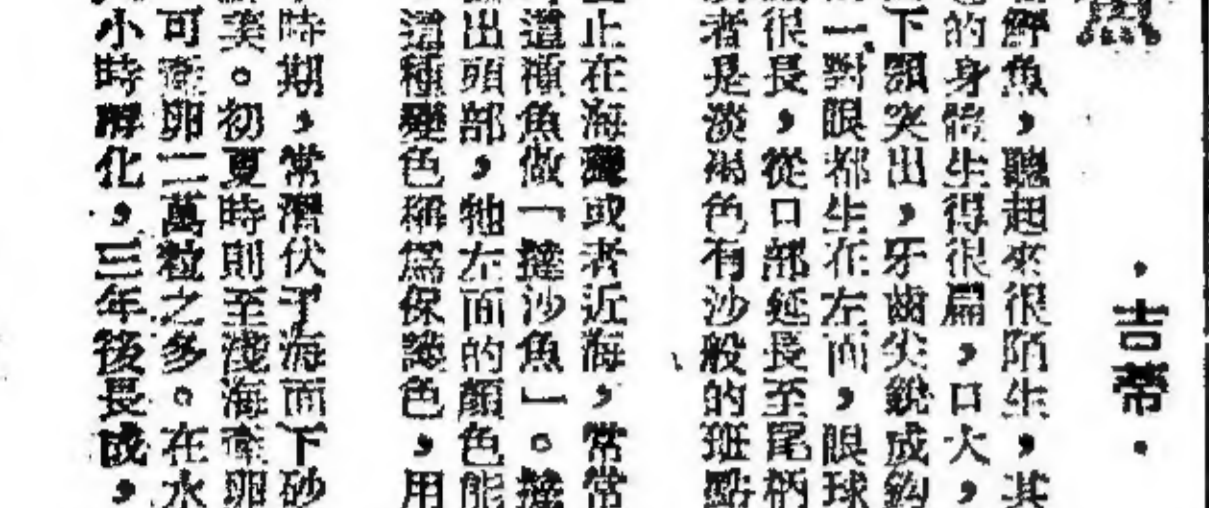 ・吉蒂・
鮮魚，聽起來很陌生，其
的身體生得很扁，口大，
下顎突出，牙齒尖銳成鈎
一對眼都生在左面，眼球
很長，從口部延長至尾柄
者是淡褐色有沙般的斑點
止在海灣或者近海，常常
這種魚做「撻沙魚」。撻
出頭部，牠左面的顏色能
這種變色稱爲保護色，用
時期，常潛伏于海面下砂
美。初夏時則至淺海產卵
可產卵二萬粒之多。在水
小時孵化，三年後長成，